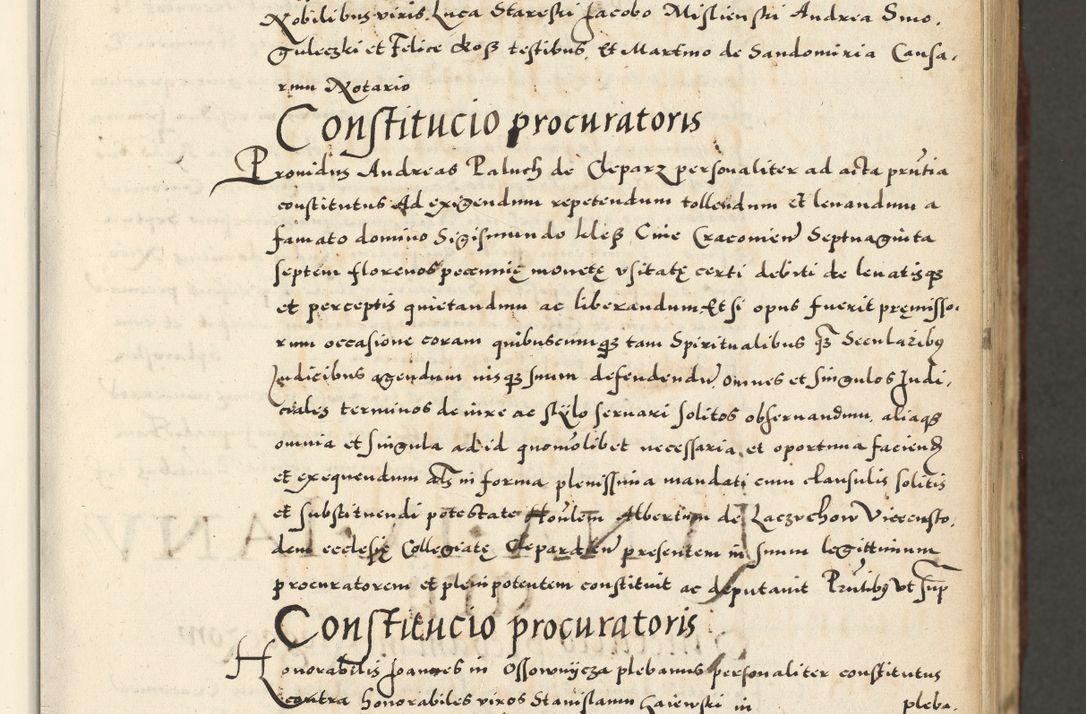 Nobilibus viris Luca Stareski Jacobo Mislienski Andrea Smo,
guleczki et Felice dosz testibus, Et Martino de Sandomiria Causa,
rum Notario
Constitucio procuratoris
Prouidus Andreas Paluch de Clepardz personaliter ad acta prūtia
constitutus Ad exigendum repetendum tollendum et leuandum a
famato domino Sigismundo Kelesz Ciue Cracouien̄ Septuaginta
septem florenos pecunię monetę vsitatę certi debiti de leuatisqȝ
et perceptis quietandum ac liberandum Et si opus fuerit pręmisso,
rum occasione coram quibuscumqȝ tam Spiritualibus qȝ Secularibȝ
Judicibus agendum uisqȝ suum defendendū omnes et singulos Judi,
ciales terminos de iure ac stylo seruari solitos obseruandum, aliaqȝ
omnia et singula ad id quomōlibet necessaria et oportuna faciend
et exequendum als in forma plenissima mandati cum clausulis solitis
et substituendi potestate Honlem Albertum de Laczychow Vicecusto,
dem ecclesię Collegiatę Clepardien̄ presentem in suum legittimum
procuratorem et plenipotentem constituit ac deputauit Prūtibȝ vt sup
Constitucio procuratoris
Honorabilis Joannes in Ossowniycza plebanus personaliter constitutus
contra honorabiles viros Stanislaum in pleba,